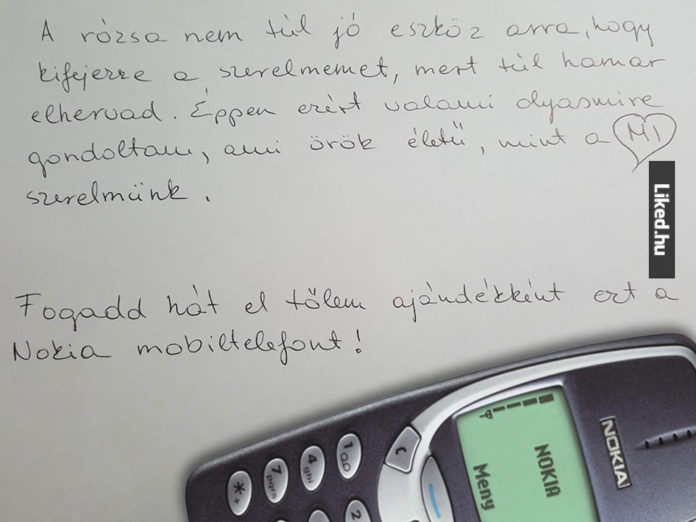 A rózsa nem túl jó eszköz arra, hogy
kifejezze a szerelmemet, mert túl hamar
elhervad. Éppen ezért valami olyasmire
gondoltam, ami örök életű, mint a MI
szerelmünk.
Liked.hu
Fogadd hát el tőlem ajándékként ezt a
Nokia mobiltelefont!
NOKIA
NOKIA
Meny
C
1
4 ghi
7 pqrs
* +
2